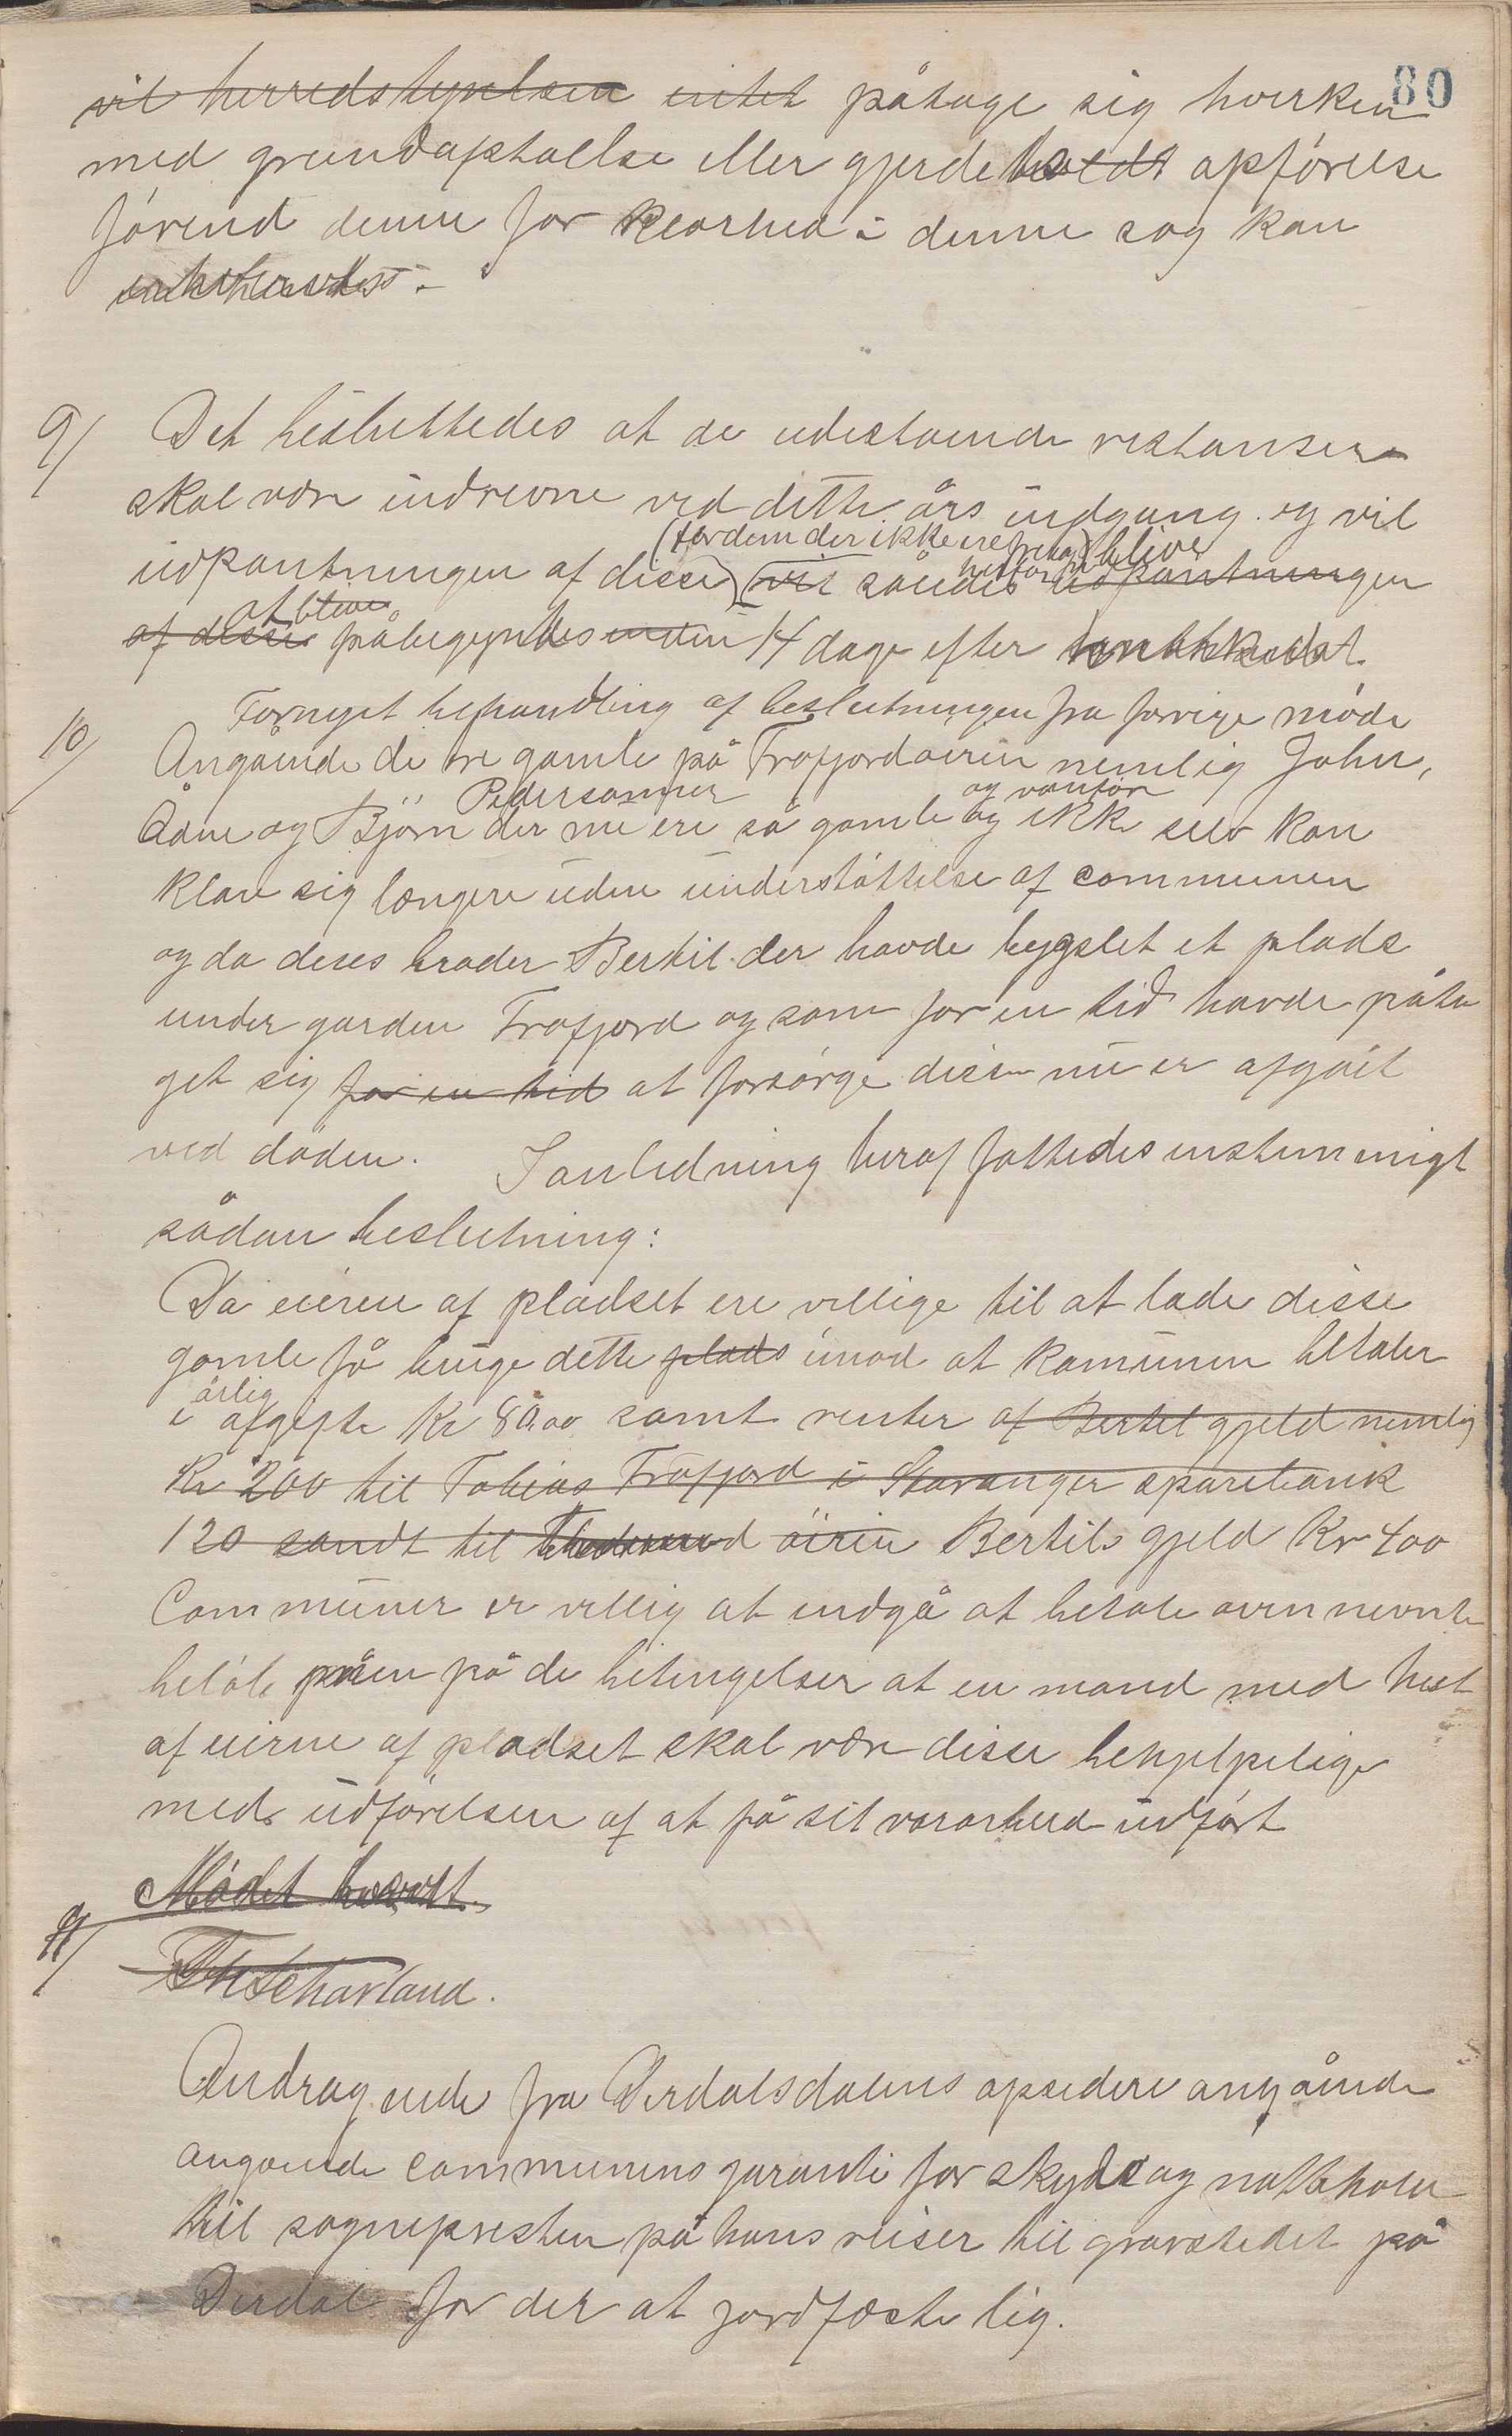 80
vil herredstyrelsen intet påtage sig hverken
med grundafståelse eller gjerdeholdt opförelse
förend denne får klarhed i denne sag kan

9/ Det besluttedes at de udestående restanser
skal være inddrevne ved dette års indgang og vil
(for dem der ikke ere blive
udpantningen af disse) vil således udpantningen
at blive
af disse påbegyndes inden 14 dage efter
10/ Fornyet behandling af beslutningen fra forrige möde
Angående de tre gamle på Frafjordøiren nemlig John,
Pedersønner og vanför
Ådne og Björn der nu ere så gamle og ikke selv kan
klare sig længere uden understöttelse af communen
og da deres broder Bertil der havde bygslet et plads
under garden Frafjord og som for en tid havde påta
get sig for en tid at forsörge disse nu er afgået
ved döden. I anledning heraf fattedes enstemmigt
sådan beslutning:
Da eieren af pladset ere villige til at lade disse
gamle få bruge dette plads imod at kommunen betaler
årlig
i afgifte Kr 80,00 samt renter af Bertil gjeld nemlig
Kr 200 til Tobias Frafjord i Stavanger sparebank
120 samt til öiren Bertils gjeld Kr 400
Communen er villig at indgå at betale ovennevnte
belöb men på de betingelser at en mand med hest
af eierne af pladset skal være disse behjelpelige
med udförelsen af at få sit vårarbeid udfört
Mödet hævet.
11/
Th Schavland.
Andragende fra Dirdalsdalens opsidere angående
angående communens garanti for skyds og nattehold
til sognepresten på hans reiser til gravstedet på
Dirdal for der at jordfæste lig.